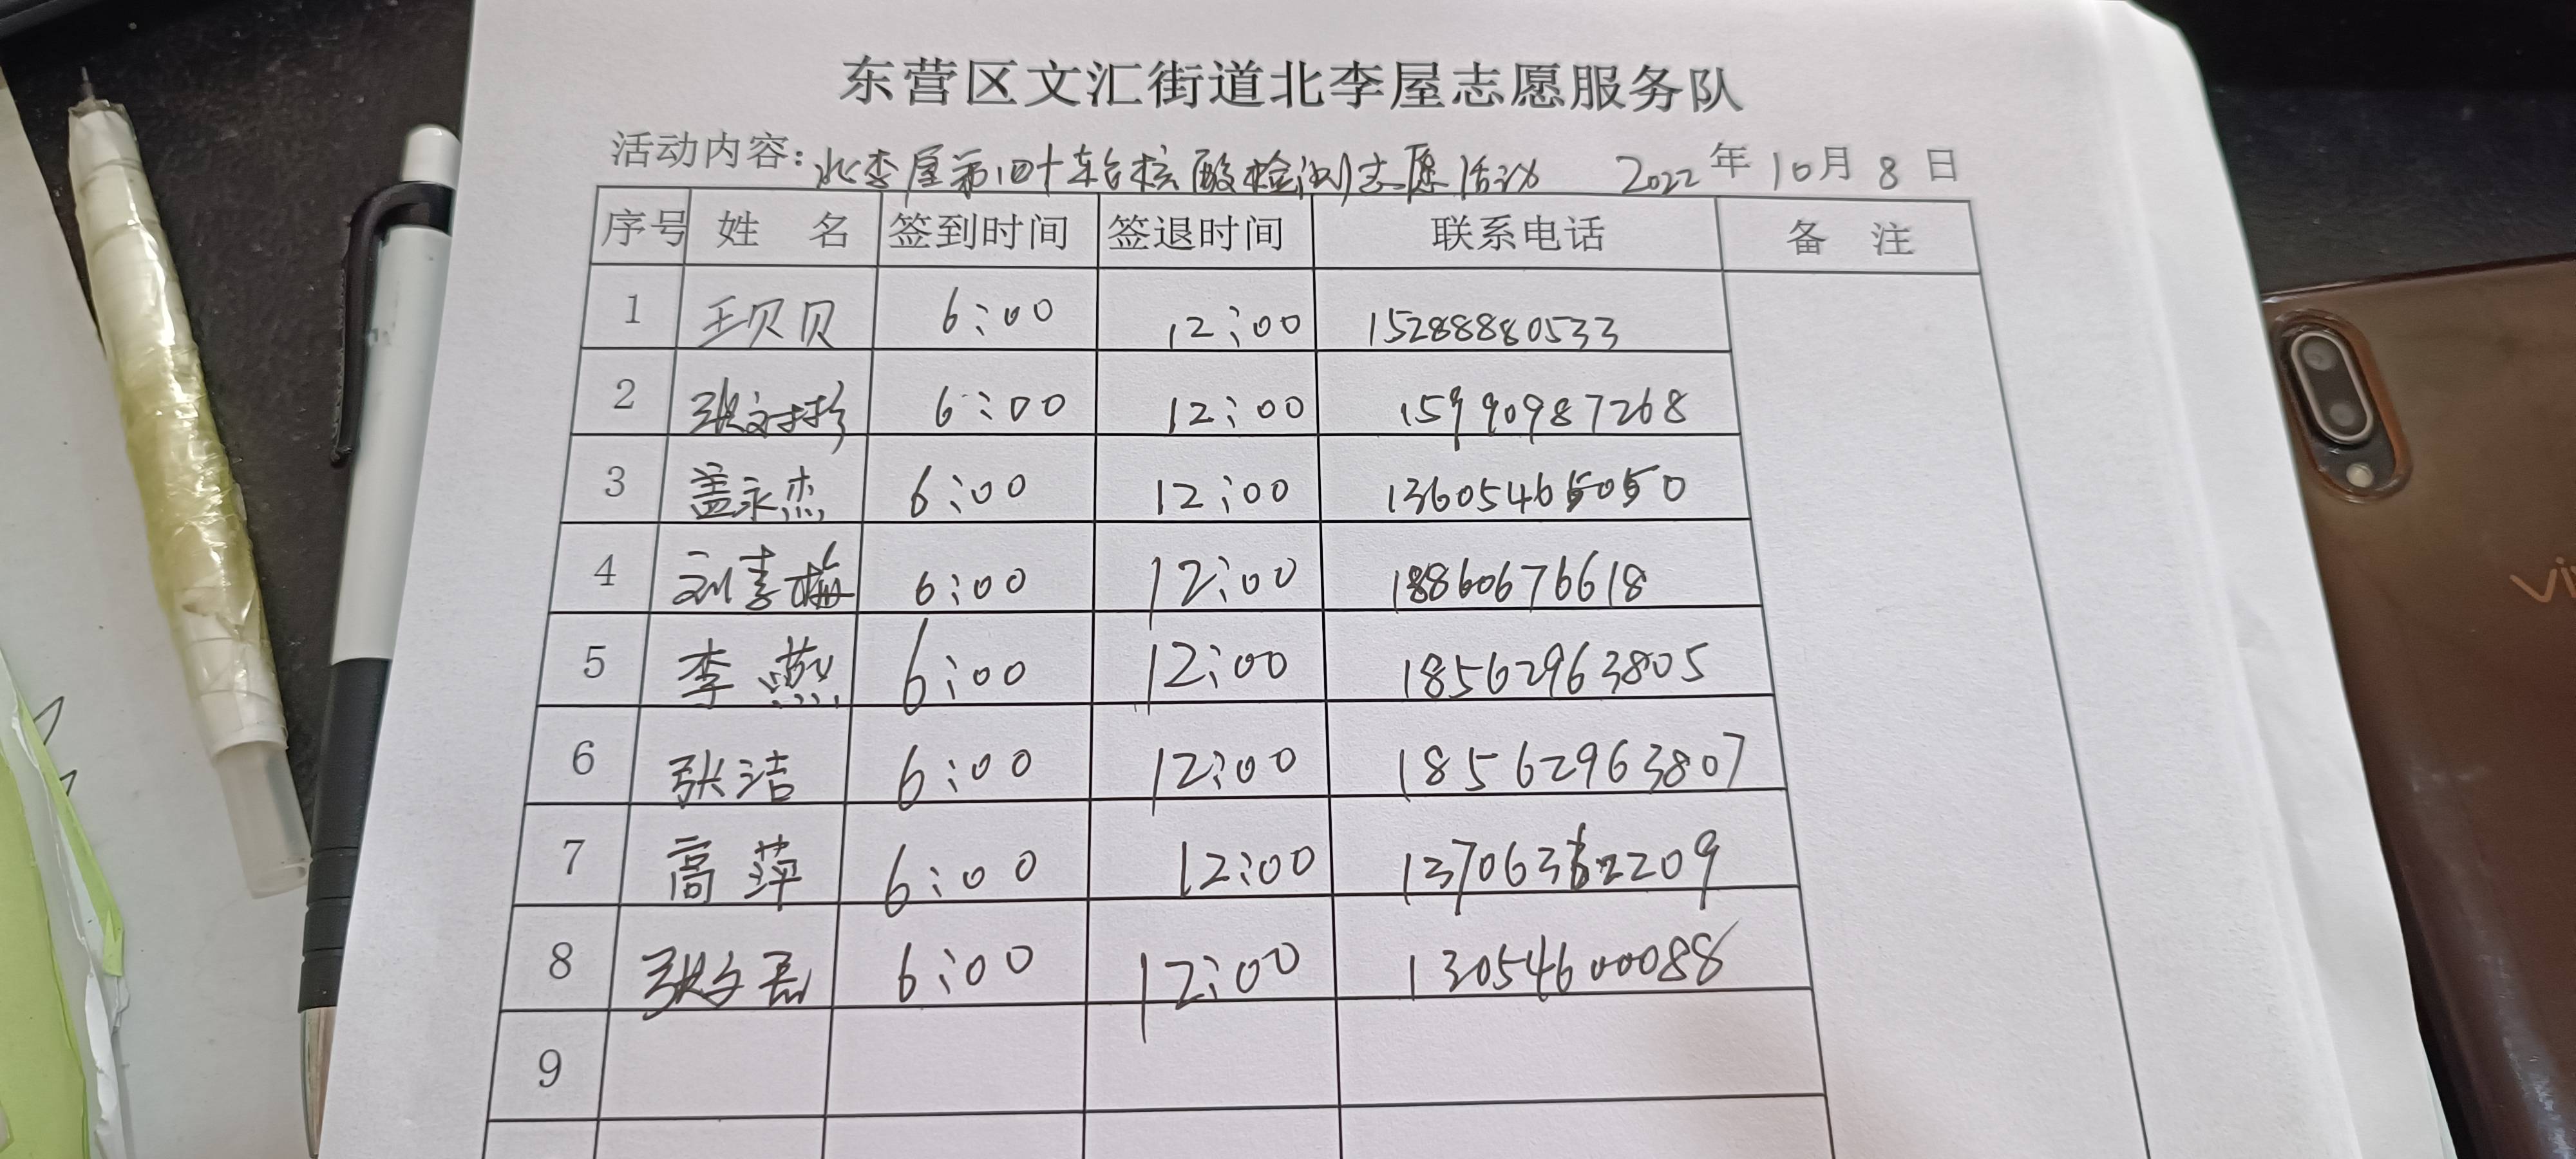 东营区文汇街道北李屋志愿服务队
活动内容：北李屋第四十车台核酸检测志愿活动 2022年10月8日
序号 姓名 签到时间 签退时间 联系电话 备注
1 王贝贝 6:00 12:00 15288880533
2 张 6:00 12:00 15990987268
3 盖永杰 6:00 12:00 13605465050
4 刘青梅 6:00 12:00 18860676618
5 李燕 6:00 12:00 18562963805
6 张洁 6:00 12:00 18562963807
7 高萍 6:00 12:00
8 张文磊 6:00 12:00 13054600088
9